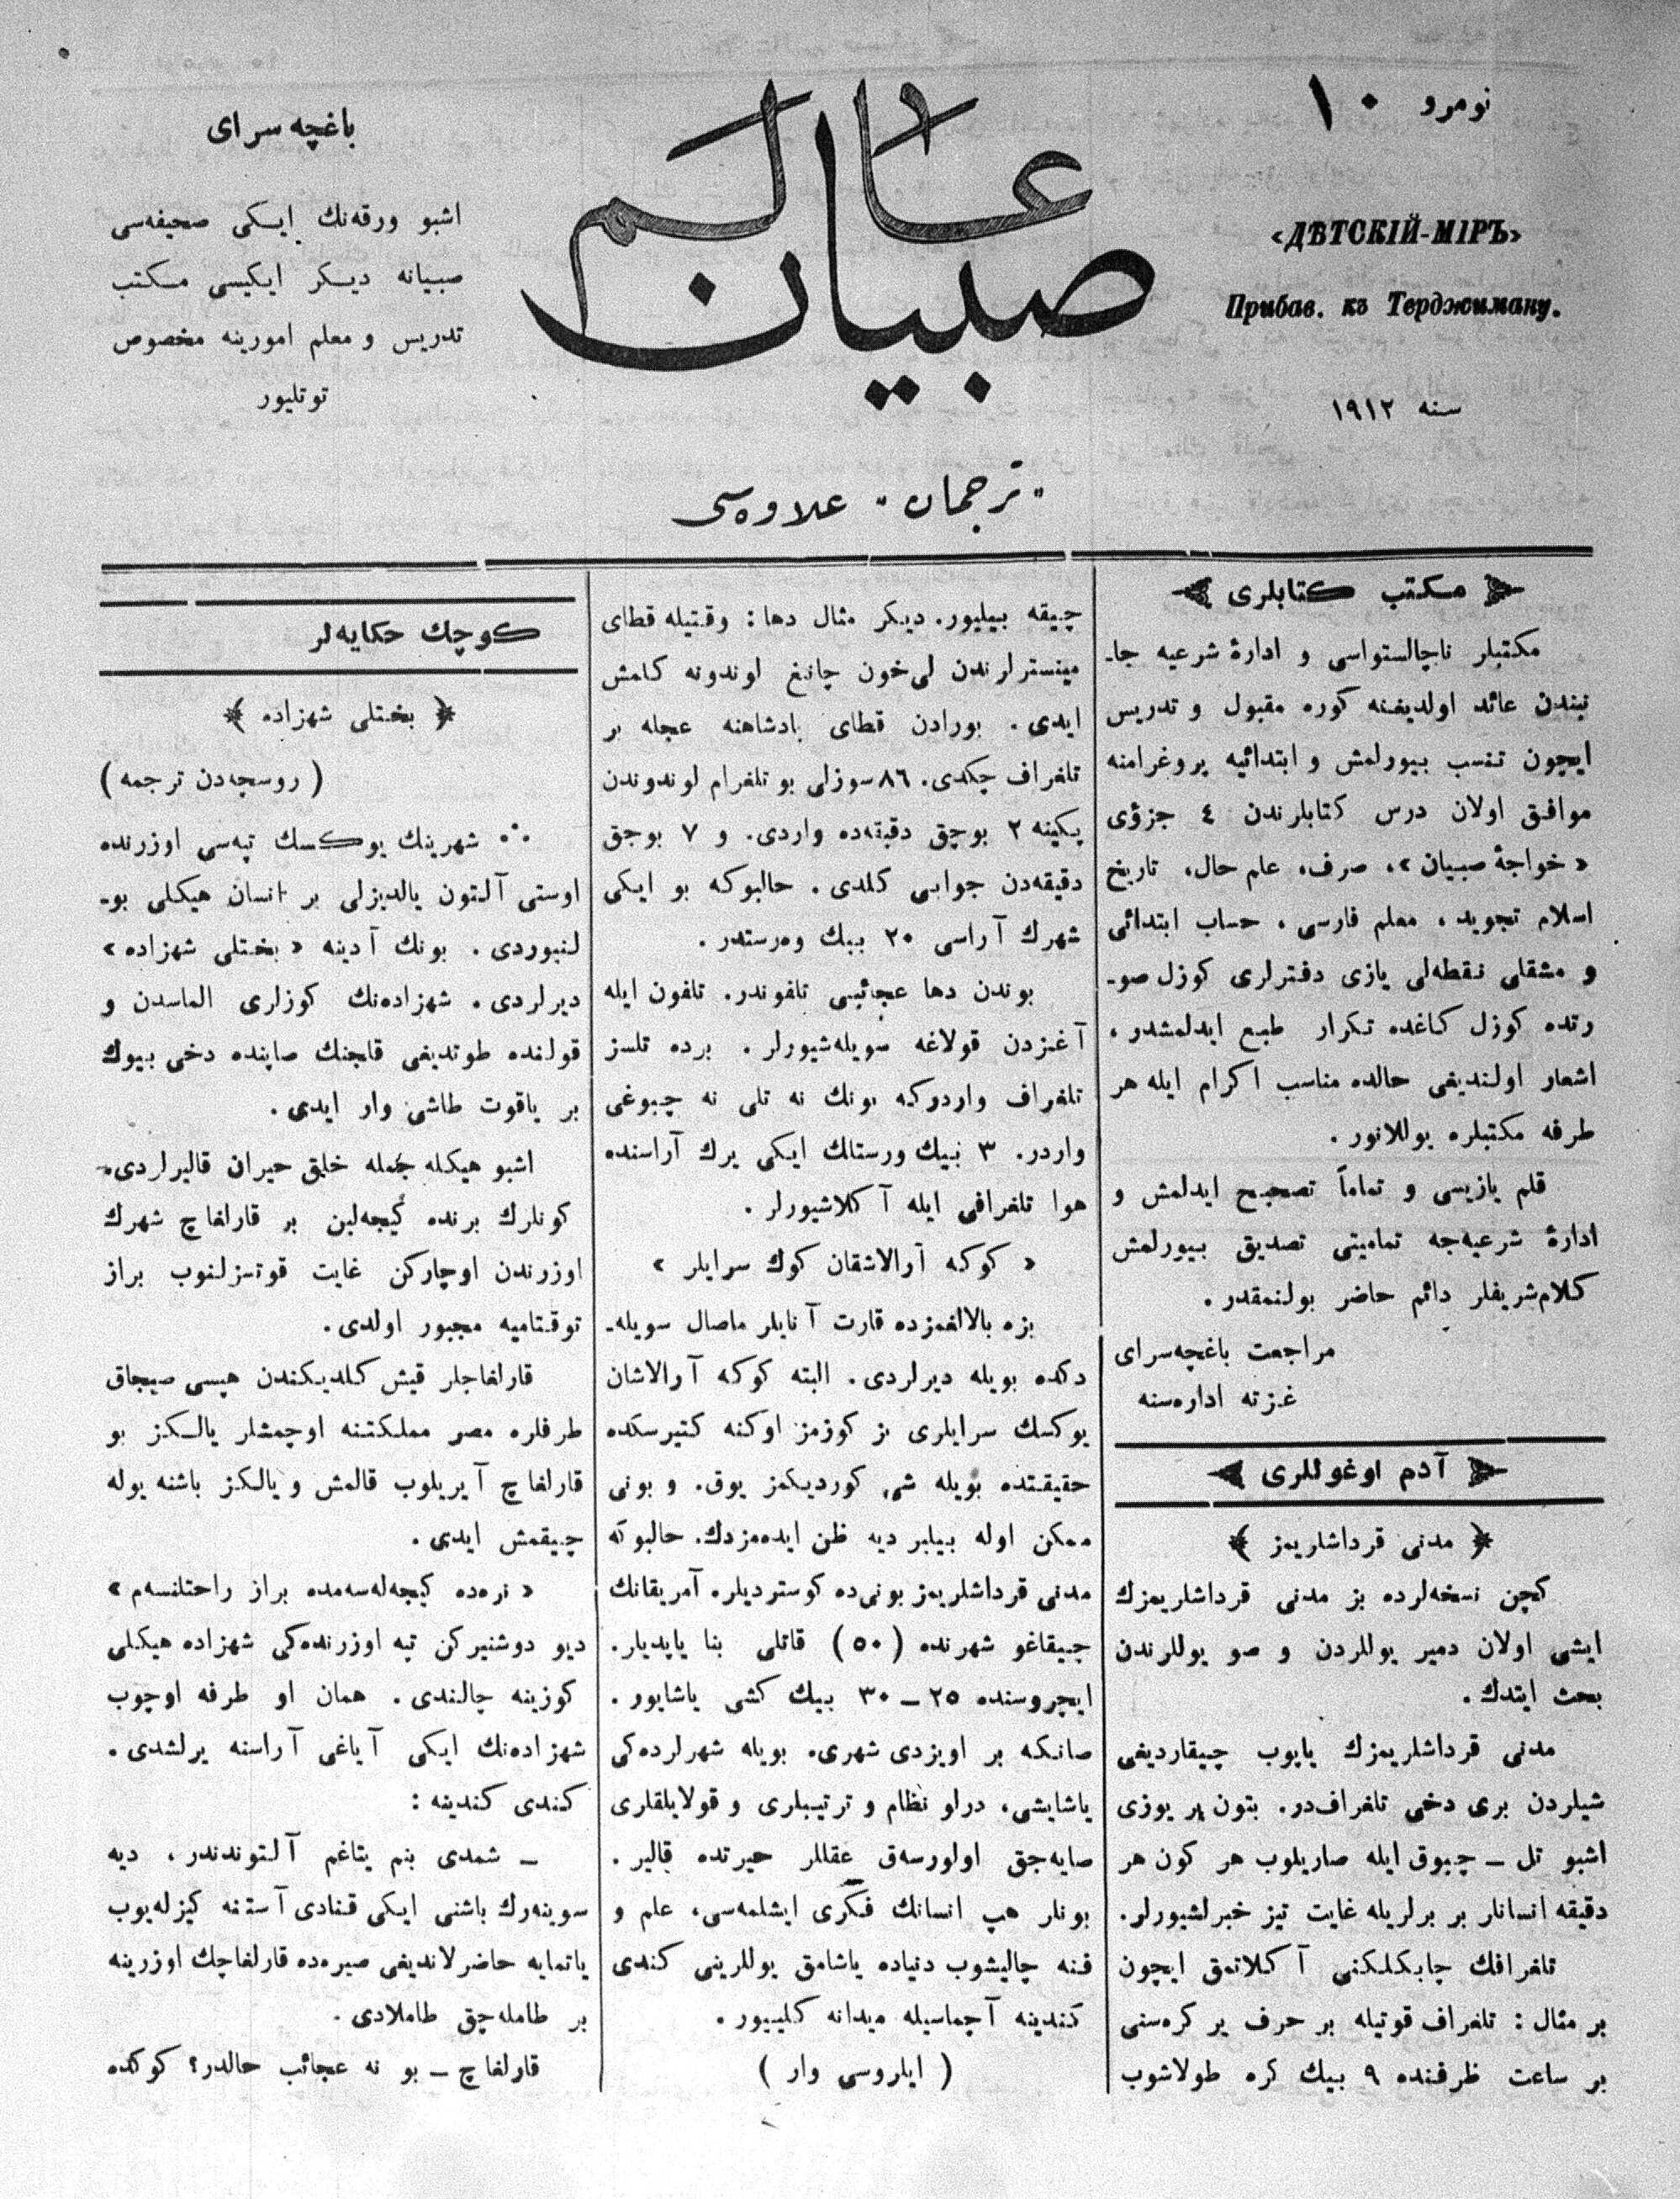 نومرو ١٠
«ДѢТСКІЙ-МІРЪ»
Прибав. къ Терджиману.
سنه ١٩١٢
عالم
صبيان
"ترجمان" علاوه‌سی
باغچه سرای
اشبو ورقه‌نك ایکی صحیفه‌سی
صبیانه دیکر ایکیسی مکتب
تدریس و معلم امورینه مخصوص
توتلیور
مکتب کتابلری
مکتبلر ناچالستواسی و ادارۀ شرعیه جا-
نبندن عائد اولدیغنه کوره مقبول و تدریس
ایچون تنسب بیورلمش و ابتدائیه پروغرامنه
موافق اولان درس کتابلرندن ٤ جزؤی
«خواجۀ صبیان»، صرف، علم حال، تاریخ
اسلام تجوید، معلم فارسی، حساب ابتدائی
و مشقلی نقطه‌لی یازی دفترلری کوزل صو-
رتده کوزل کاغده تکرار طبع ایدلمشدر،
اشعار اولندیغی حالده مناسب اکرام ایله هر
طرفه مکتبلره یوللانور.
قلم یازیسی و تماماً تصحیح ایدلمش و
ادارۀ شرعیه‌جه تمامیتی تصدیق بیورلمش
کلام‌شریفلر دائم حاضر بولنمقدر.
مراجعت باغچه‌سرای
غزته اداره‌سنه
آدم اوغوللری
﴿ مدنی قرداشاریمز ﴾
کچن نسخه‌لرده بز مدنی قرداشلریمزك
ایشی اولان دمیر یوللردن و صو یوللرندن
بحث ایتدك.
مدنی قرداشلریمزك یاپوب چیقاردیغی
شیلردن بری دخی تلغراف‌در. بتون یر یوزی
اشبو تل ــ چبوق ایله صاریلوب هر کون هر
دقیقه انسانلر بر برلریله غایت تیز خبرلشیورلر.
تلغرافك چابکلکنی آکلاتمق ایچون
بر مثال: تلغراف قوتیله بر حرف یر کره‌سنی
بر ساعت ظرفنده ٩ بیك کره طولاشوب
چیقه بیلیور. دیکر مثال دها: وقتیله قطای
مینسترلرندن لی‌خون چانغ لوندونه کلمش
ایدی. بورادن قطای پادشاهنه عجله بر
تلغراف چکدی. ٨٦ سوزلی بو تلغرام لوندوندن
پکینه ٢ بوچق دقیقه‌ده واردی. و ٧ بوجق
دقیقه‌دن جوابی کلدی. حالبوکه بو ایکی
شهرك آراسی ٢٠ بیك وه‌رستدر.
بوندن دها عجائبی تلفوندر. تلفون ایله
آغزدن قولاغه سویله‌شیورلر. برده تلسز
تلغراف واردرکه بونك نه تلی نه چبوغی
واردر. ٣ بیك ورستلك ایکی یرك آراسنده
هوا تلغرافی ایله آکلاشیورلر.
«کوکه آرالاشقان کوك سرایلر»
بزه بالالغمزده قارت آنایلر ماصال سویله-
دکده بویله دیرلردی. البته کوکه آرالاشان
یوکسك سرایلری بز کوزمز اوکنه کتیرسکده
حقیقتده بویله شی کوردیکمز یوق. و بونی
ممکن اوله بیلیر دیه ظن ایده‌مزدك. حالبوکه
مدنی قرداشلریمز بونی‌ده کوستردیلر. آمریقانك
چیقاغو شهرنده (٥٠) قاتلی بنا یاپدیلر.
ایچروسنده ٢٥ ــ ٣٠ بیك کشی یاشایور.
صانکه بر اویزدی شهری. بویله شهرلرده‌کی
یاشایشی، درلو نظام و ترتیبلری و قولایلقلری
صایه‌جق اولورسه‌ق عقللر حیرتده قالیر.
بونلر هپ انسانك فکری ایشلمه‌سی، علم و
فنه چالیشوب دنیاده یاشامق یوللرینی کندی
کندینه آچماسیله میدانه کلیور.
( ایلروسی وار )
کوچك حکایه‌لر
﴿ بختلی شهزاده ﴾
(روسچه‌دن ترجمه)
∴ شهرینك یوکسك تپه‌سی اوزرنده
اوستی آلتون یالدیزلی بر انسان هیکلی بو-
لنیوردی. بونك آدینه «بختلی شهزاده»
دیرلردی. شهزاده‌نك کوزلری الماسدن و
قولنده طوتدیغی قلجنك صاپنده دخی بیوك
بر یاقوت طاشی وار ایدی.
اشبو هیکله جمله خلق حیران قالیرلردی.
کونلرك برنده کیجه‌لین بر قارلغاچ شهرك
اوزرندن اوچارکن غایت قوتسزلنوب براز
توقتامیه مجبور اولدی.
قارلغاجلر قیش کلدیکندن هپسی صیجاق
طرفلره مصر مملکتنه اوچمشلر یالکز بو
قارلغاچ آیریلوب قالمش و یالکز باشنه یوله
چیقمش ایدی.
«نره‌ده کیجه‌له‌سه‌مده براز راحتلنسه‌م»
دیو دوشنیرکن تپه اوزرنده‌کی شهزاده هیکلی
کوزینه چالندی. همان او طرفه اوچوب
شهزاده‌نك ایکی آیاغی آراسنه یرلشدی.
کندی کندینه:
ــ شمدی بنم یتاغم آلتوندندر، دیه
سوینه‌رك باشنی ایکی قنادی آستنه کیزله‌یوب
یاتمایه حاضرلاندیغی صیره‌ده قارلغاچك اوزرینه
بر طامله‌چق طاملادی.
قارلغاچ ــ بو نه عجائب حالدر؟ کوکده